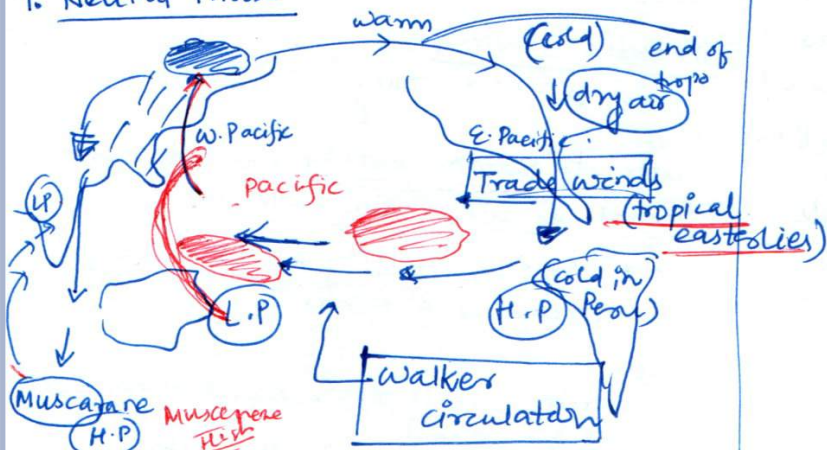 1. Neutral
warm
(cold)
end of
tropo
dry air
W. Pacific
E. Pacific.
Pacific
Trade winds
(tropical
easterlies)
LP
(cold in
Peru)
L.P
H.P
Walker
circulation
Muscarane
H.P
Muscerene
High